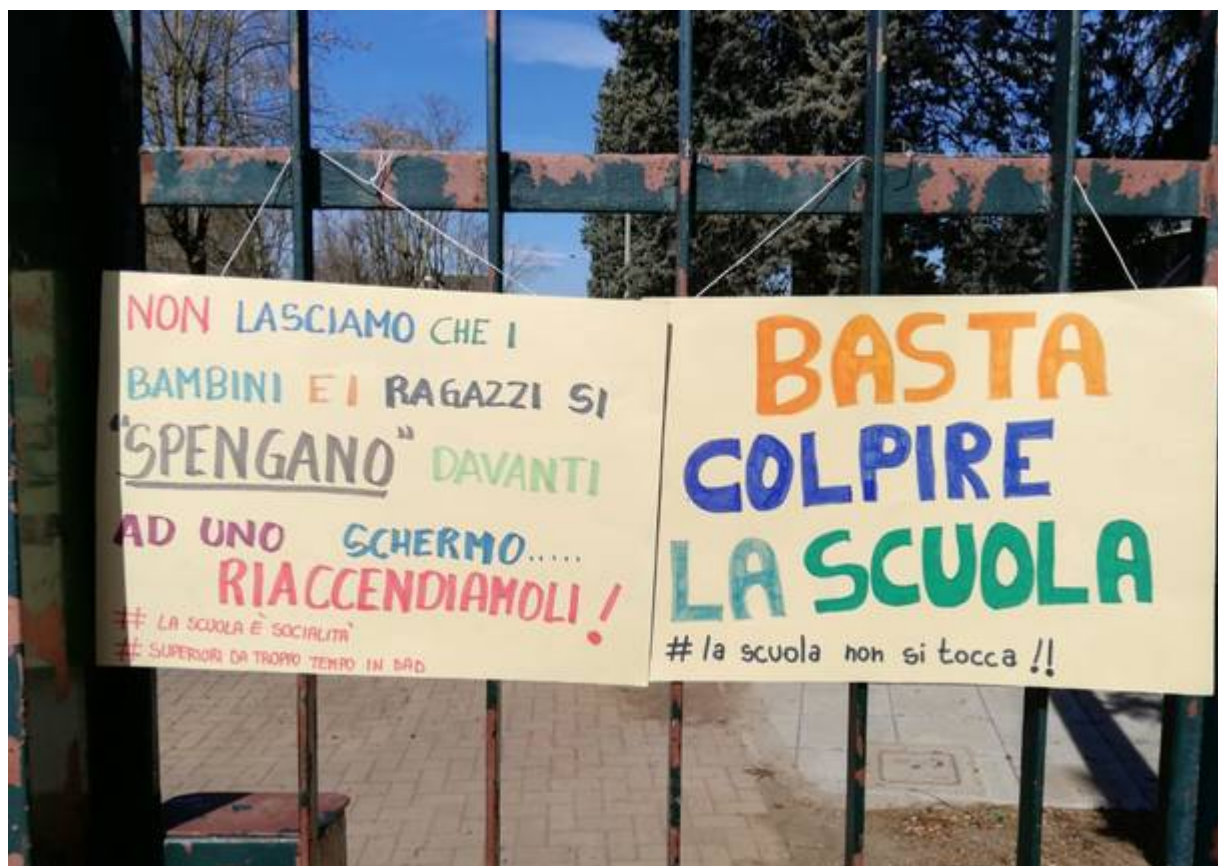 NON LASCIAMO CHE I
BAMBINI E I RAGAZZI SI
"SPENGANO" DAVANTI
AD UNO SCHERMO.....
RIACCENDIAMOLI!
# LA SCUOLA È SOCIALITÀ
# SUPERIORI DA TROPPO TEMPO IN DAD
BASTA
COLPIRE
LA SCUOLA
# la scuola non si tocca !!